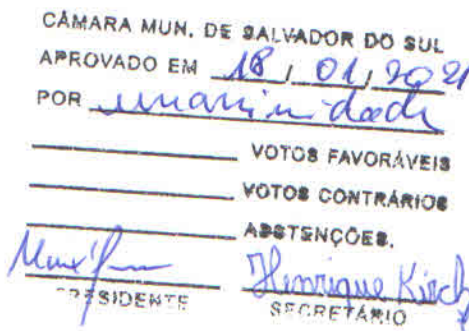 CÂMARA MUN. DE SALVADOR DO SUL
APROVADO EM 18 / 01 / 2021
POR unanimidade
VOTOS FAVORÁVEIS
VOTOS CONTRÁRIOS
ABSTENÇÕES.
Henrique Kirch
PRESIDENTE SECRETÁRIO